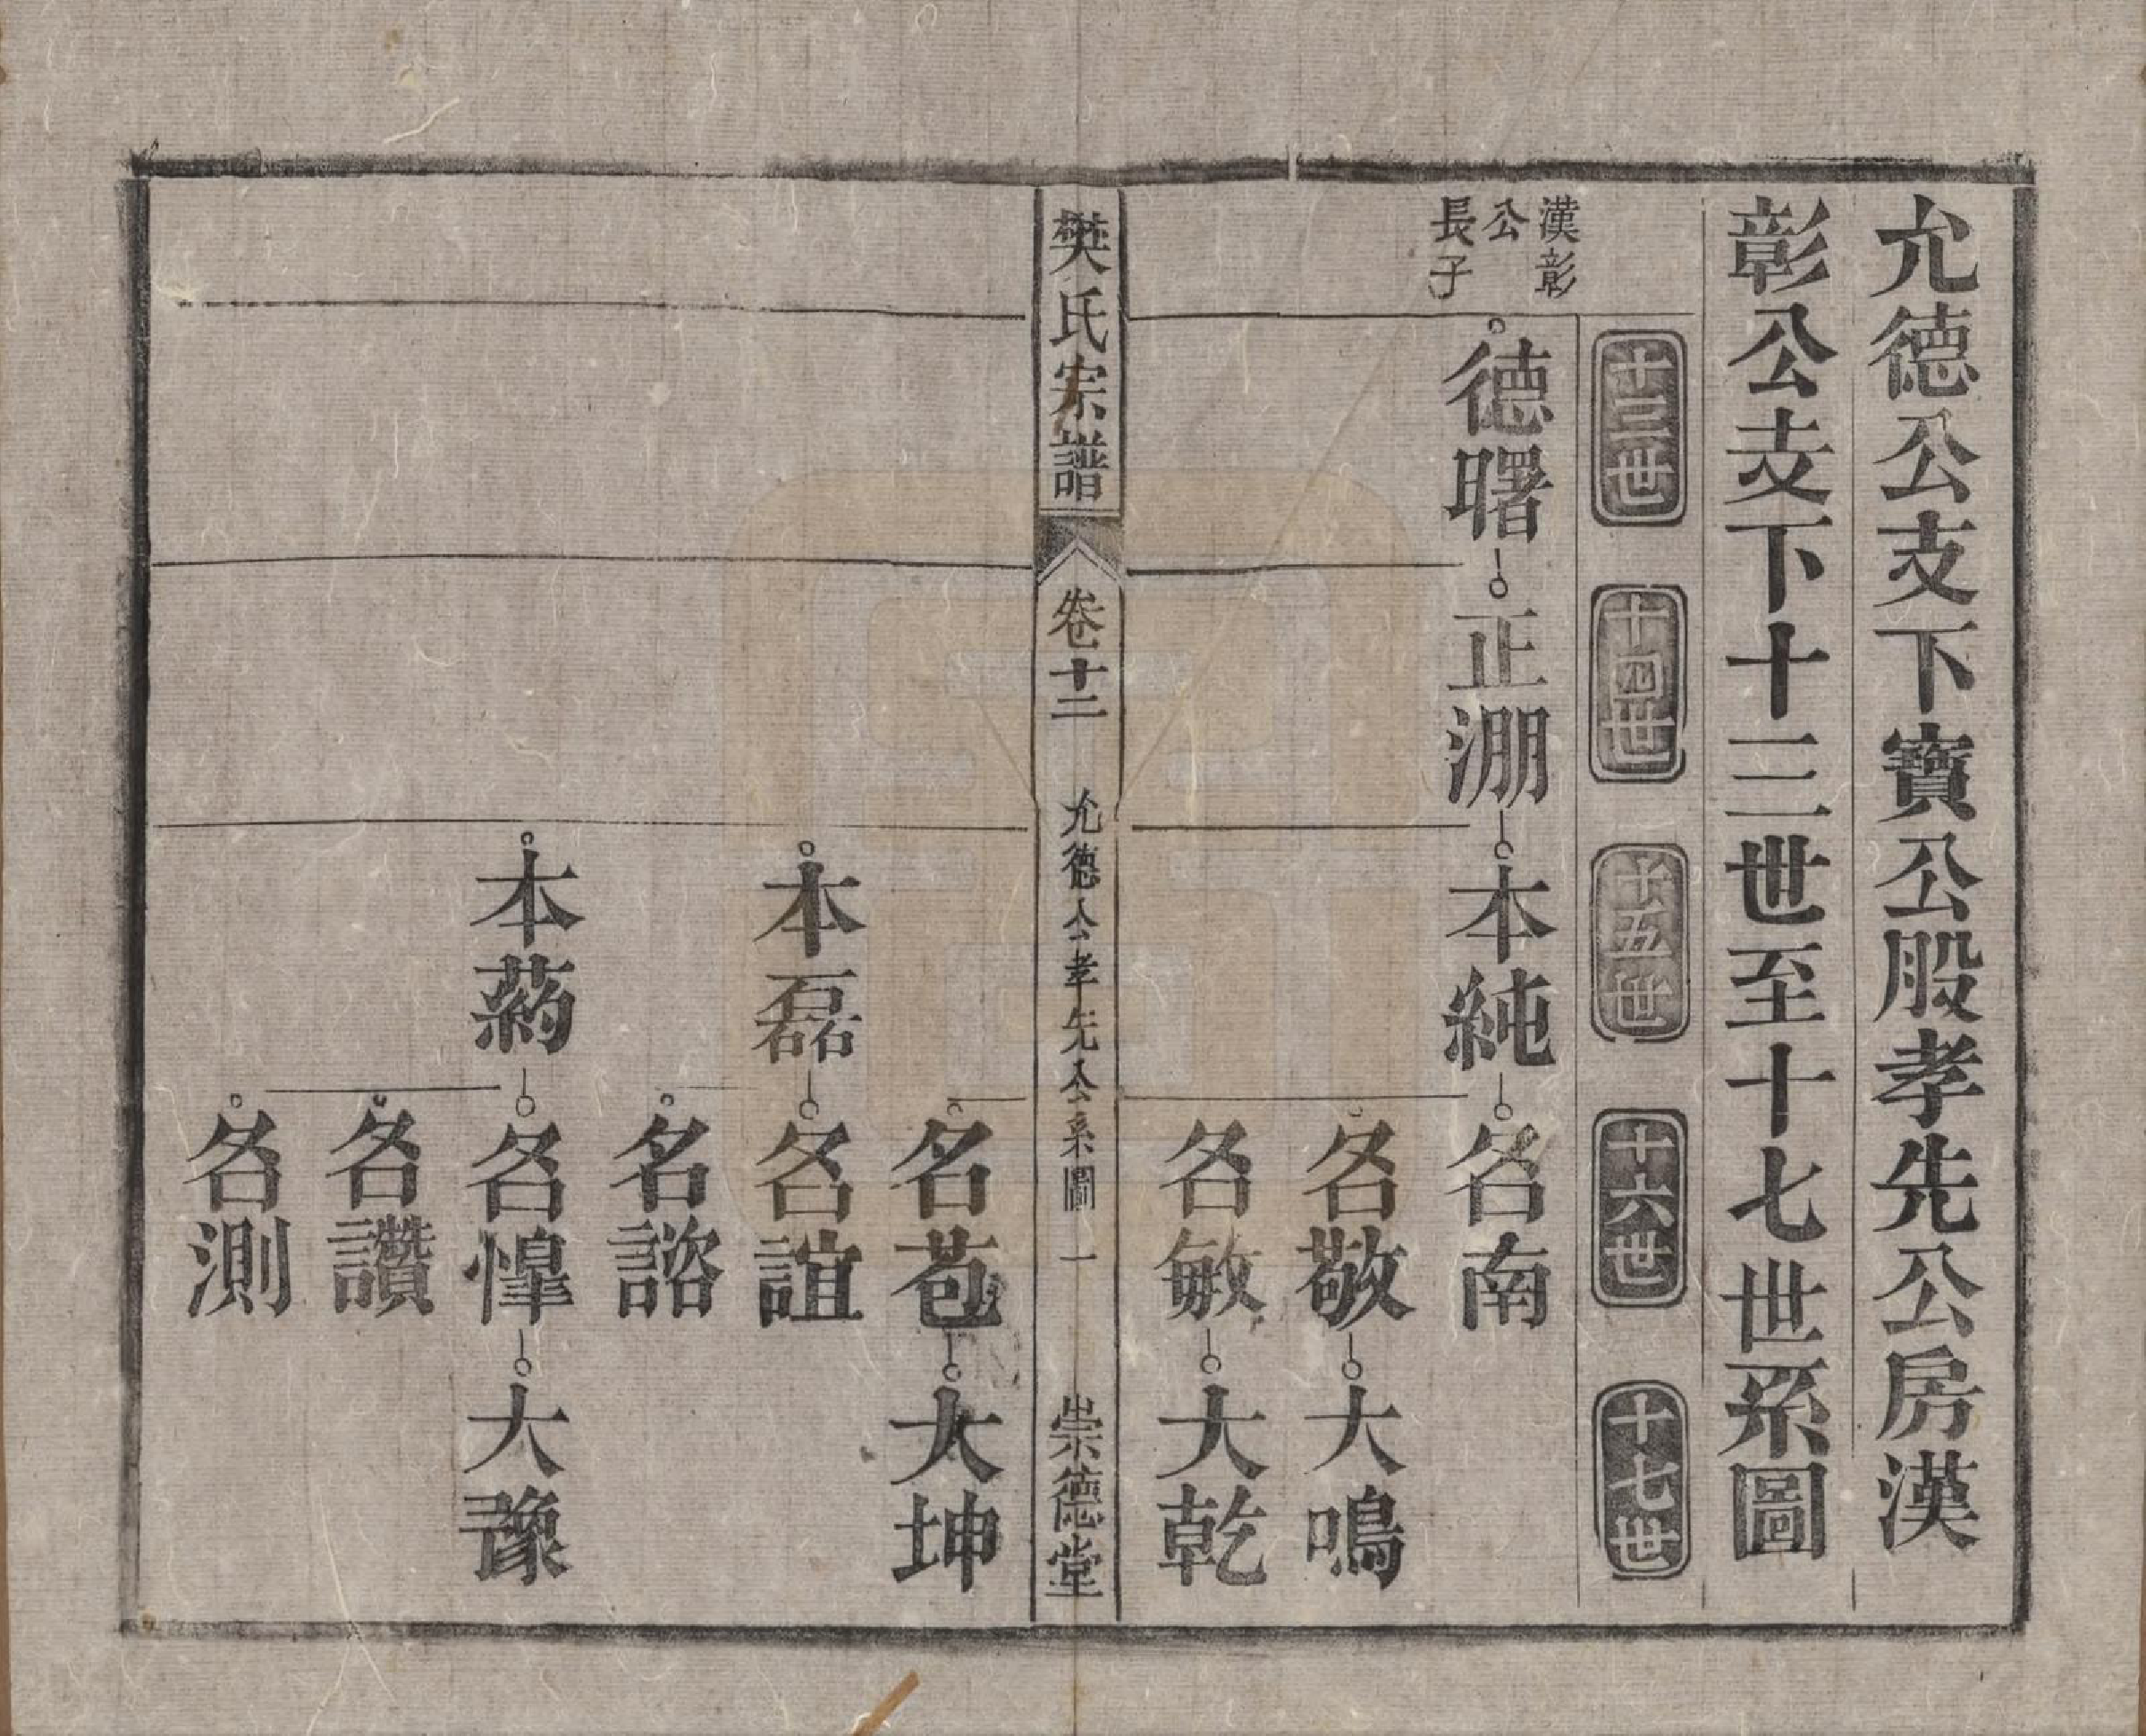 允德公支下寶公股孝先公房漢
彰公支下十三世至十七世系圖
十三世
十四世
十五世
十六世
十七世
漢彰
公
長子
德曙
正淜
本純
名南
名敬
大鳴
名敏
大乾
樊氏宗譜
卷十二
允德公孝先公系圖
一
崇德堂
名苞
大坤
本磊
名誼
名諮
本葯
名惶
大豫
名讚
名測